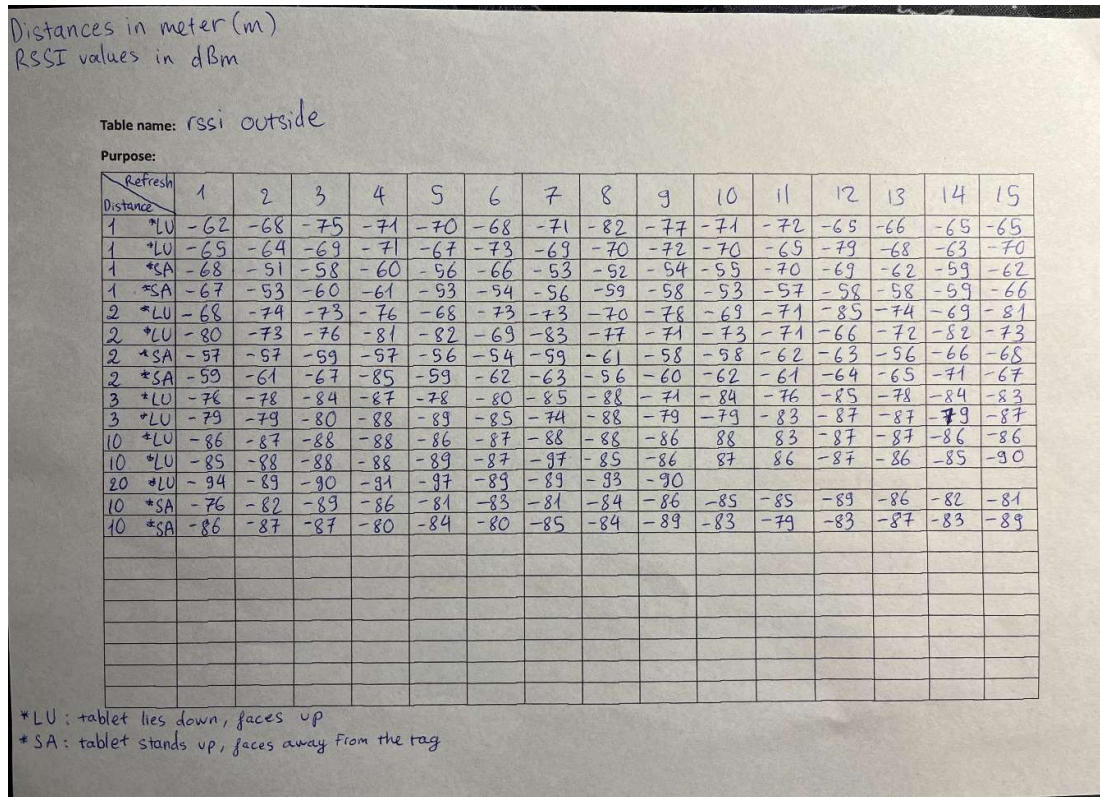 Distances in meter (m)
RSSI values in dBm
Table name: rssi outside
Purpose:
Refresh 1 2 3 4 5 6 7 8 9 10 11 12 13 14 15
Distance
1 *LU -62 -68 -75 -71 -70 -68 -71 -82 -77 -71 -72 -65 -66 -65 -65
1 *LU -65 -64 -69 -71 -67 -73 -69 -70 -72 -70 -65 -79 -68 -63 -70
1 *SA -68 -51 -58 -60 -56 -66 -53 -52 -54 -55 -70 -69 -62 -59 -62
1 *SA -67 -53 -60 -61 -53 -54 -56 -59 -58 -53 -57 -58 -58 -59 -66
2 *LU -68 -74 -73 -76 -68 -73 -73 -70 -78 -69 -71 -85 -74 -69 -81
2 *LU -80 -73 -76 -81 -82 -69 -83 -77 -71 -73 -71 -66 -72 -82 -73
2 *SA -57 -57 -59 -57 -56 -54 -59 -61 -58 -58 -62 -63 -56 -66 -68
2 *SA -59 -61 -67 -85 -59 -62 -63 -56 -60 -62 -61 -64 -65 -71 -67
3 *LU -78 -84 -87 -78 -80 -85 -88 -71 -84 -76 -85 -78 -84 -83
3 *LU -79 -79 -80 -88 -89 -85 -74 -88 -79 -79 -83 -87 -87 -79 -87
10 *LU -86 -87 -88 -88 -86 -87 -88 -88 -86 88 83 -87 -87 -86 -86
10 *LU -85 -88 -88 -88 -89 -87 -97 -85 -86 87 86 -87 -86 -85 -90
20 *LU -94 -89 -90 -91 -97 -89 -89 -93 -90
10 *SA -76 -82 -89 -86 -81 -83 -81 -84 -86 -85 -85 -89 -86 -82 -81
10 *SA -86 -87 -87 -80 -84 -80 -85 -84 -89 -83 -79 -83 -87 -83 -89
*LU : tablet lies down, faces up
*SA : tablet stands up, faces away from the tag